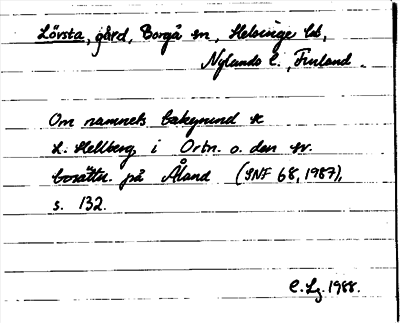 Lövsta, gård, Borgå sn, Helsinge hd,
Nylands l., Finland.
Om namnets bakgrund se
L. Hellberg i Ortn. o. den sv.
bosättn. på Åland (SNF 68, 1987),
s. 132.
C. Lg. 1988.